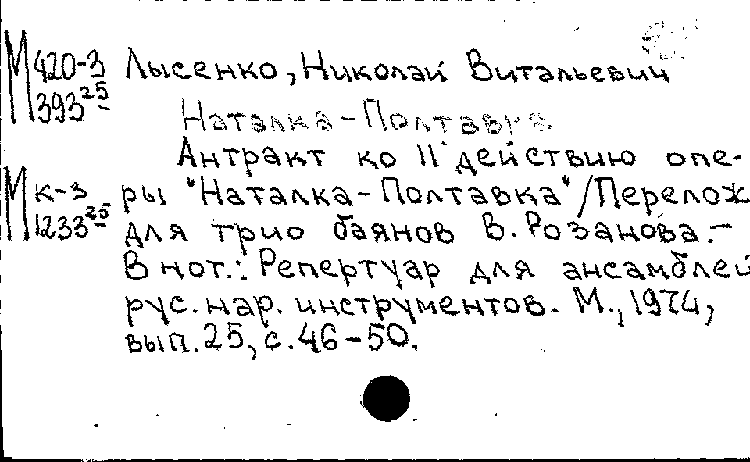 М 420-3 Лысенко, Николай Витальевич
393 25
Наталка-Полтавка.
Антракт ко II действию опе-
М к-3 ры "Наталка-Полтавка"/Перелож
1233 25 для трио баянов В. Розанова.-
В нот.: Репертуар для ансамблей
рус. нар. инструментов. М., 1974,
вып. 25, с. 46-50.